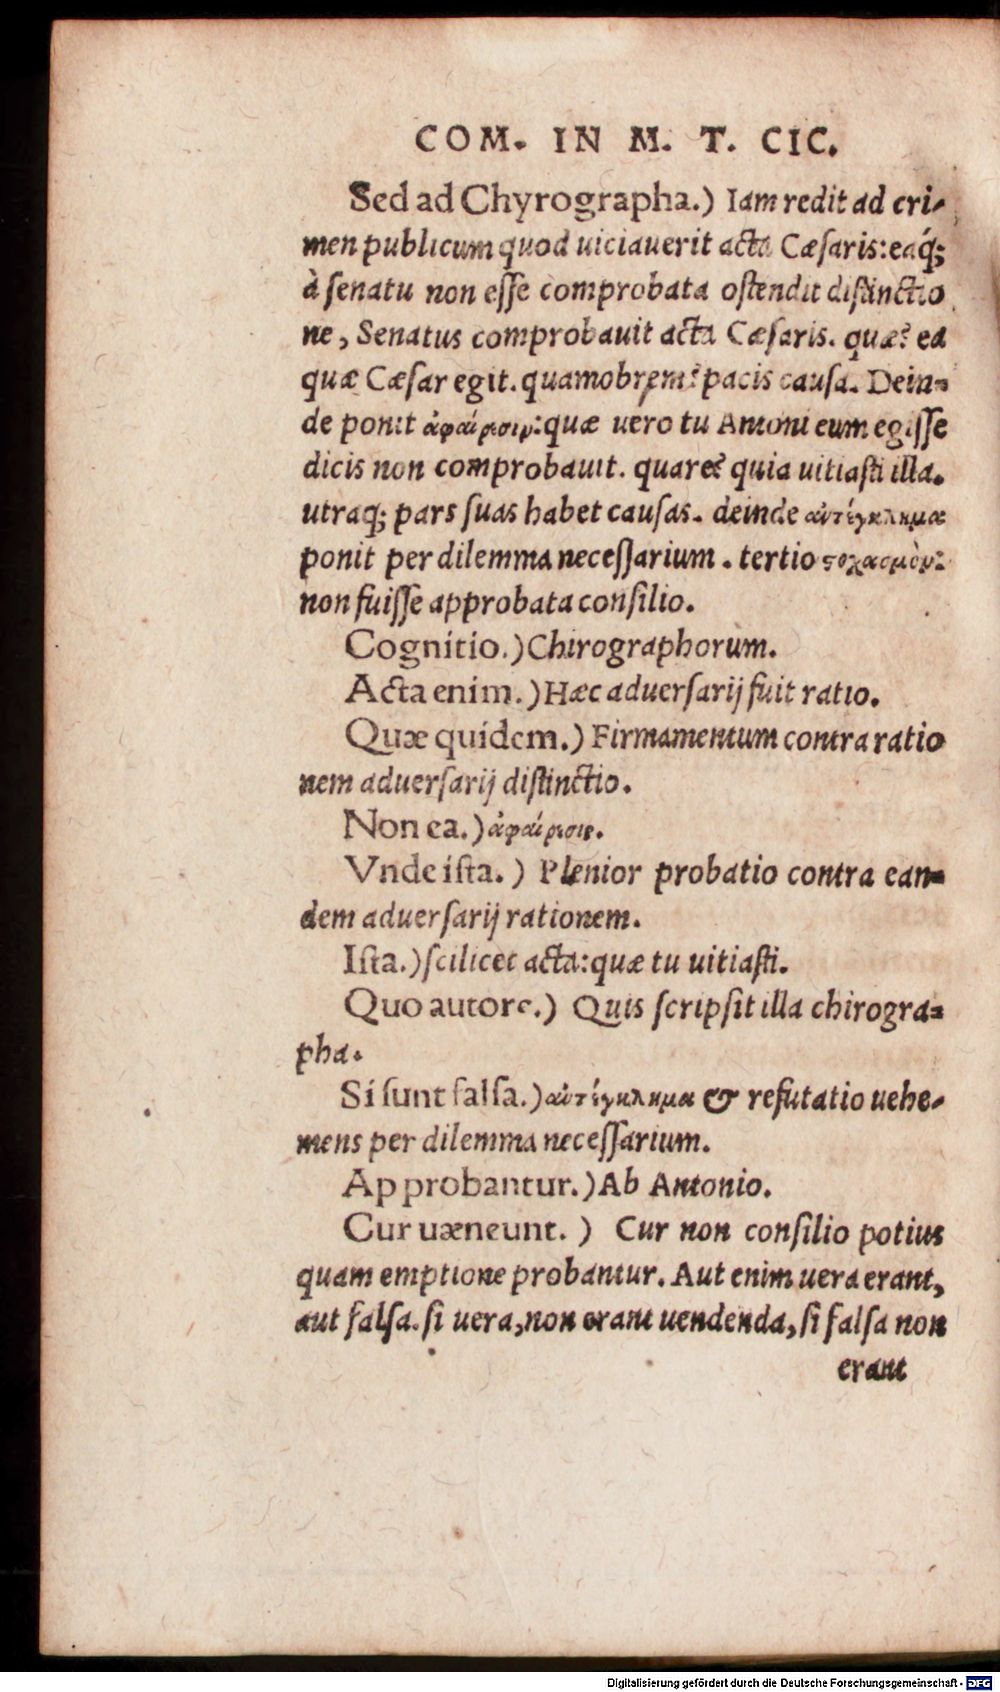 COM. IN M. T. CIC.
Sed ad Chyrographa.) Iam redit ad cri-
men publicum quod uiciauerit acta Cæſaris: eaq́;
à ſenatu non eſſe comprobata oſtendit diſtinctio
ne, Senatus comprobauit acta Cæſaris. quæ? ea
quæ Cæſar egit. quamobrem? pacis cauſa. Dein-
de ponit ἀφαίρεσιν: quæ uero tu Antoni eum egiſſe
dicis non comprobauit. quare? quia uitiaſti illa.
utraq; pars ſuas habet cauſas. deinde ἀντέγκλημα
ponit per dilemma neceſſarium. tertio ϛοχασμὸν:
non fuiſſe approbata conſilio.
Cognitio.) Chirographorum.
Acta enim.) Hæc aduerſarij fuit ratio.
Quæ quidem.) Firmamentum contra ratio
nem aduerſarij diſtinctio.
Non ea.) ἀφαίρεσις.
Vnde iſta.) Plenior probatio contra ean-
dem aduerſarij rationem.
Iſta.) ſcilicet acta: quæ tu uitiaſti.
Quo autore.) Quis ſcripſit illa chirogra-
pha.
Si ſunt falſa.) ἀντέγκλημα & refutatio uehe-
mens per dilemma neceſſarium.
Approbantur.) Ab Antonio.
Cur uæneunt.) Cur non conſilio potius
quam emptione probantur. Aut enim uera erant,
aut falſa. ſi uera, non erant uendenda, ſi falſa non
erant
Digitalisierung gefördert durch die Deutsche Forschungsgemeinschaft - DFG